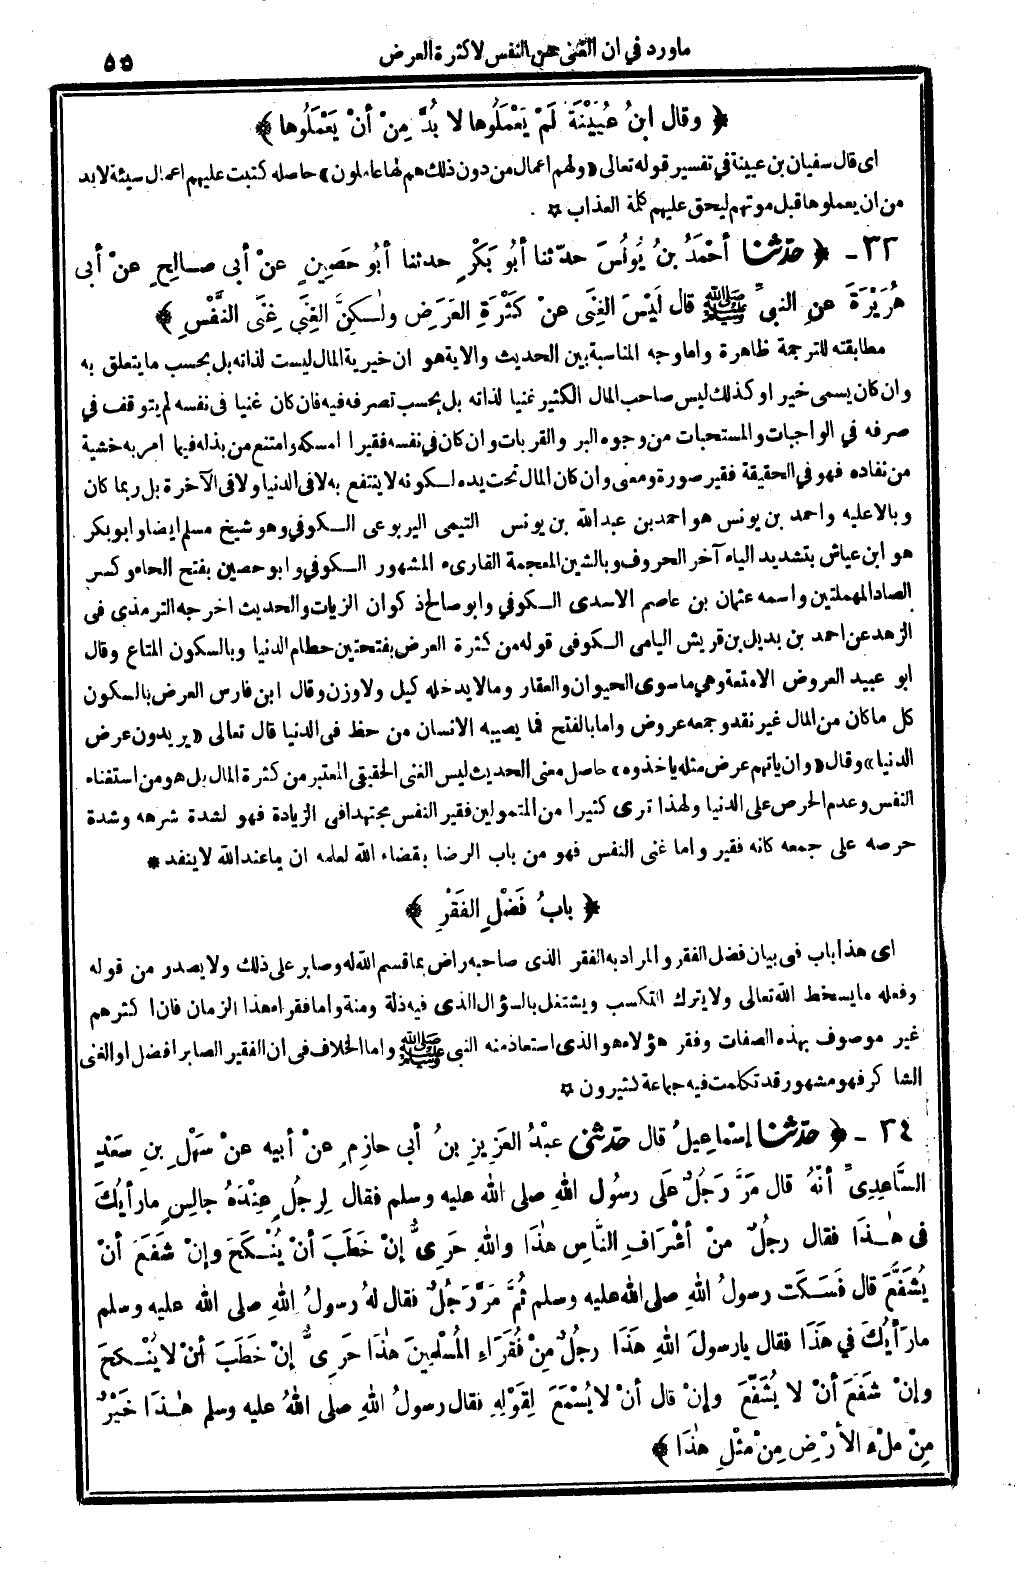 ماورد في ان الغنى عن النفس لا كثرة العرض ٥٥
﴿ وقال ابنُ عُيَيْنَةَ لَمْ يَعْمَلُوها لا بُدَّ مِنْ أنْ يَعْمَلُوها ﴾
اى قال سفيان بن عيينة في تفسير قوله تعالى (ولهم اعمال من دون ذلك هم لها عاملون) حاصله كتبت عليهم اعمال سيئة لابد
من ان يعملوها قبل موتهم ليحق عليهم كلمة العذاب ☆ .
٣٢ - ﴿ حَدَّثَنا أحْمَدُ بنُ يُونُسَ حدّثنا أبُو بَكْرٍ حدثنا أبُو حَصِينٍ عنْ أبى صالِحٍ عنْ أبى
هُرَيْرَةَ عنِ النبيِّ ﷺ قال لَيْسَ الغِنَى عنْ كَثْرَةِ العَرَضِ ولٰكِنَّ الغِنَى غِنَى النَّفْسِ ﴾
مطابقته للترجمة ظاهرة واما وجه المناسبة بين الحديث والاية هو ان خيرية المال ليست لذاته بل بحسب ما يتعلق به
وان كان يسمى خيرا وكذلك ليس صاحب المال الكثير غنيا لذاته بل بحسب تصرفه فيه فان كان غنيا فى نفسه لم يتوقف في
صرفه في الواجبات والمستحبات من وجوه البر والقربات وان كان في نفسه فقيرا امسكه وامتنع من بذله فيما امر به خشية
من نفاده فهو في الحقيقة فقير صورة ومعنى وان كان المال تحت يده لكونه لا ينتفع به لا في الدنيا ولا في الآخرة بل ربما كان
وبالا عليه واحمد بن يونس هو احمد بن عبد الله بن يونس التيمى اليربوعى الكوفي وهو شيخ مسلم ايضا وابو بكر
هو ابن عياش بتشديد الياء آخر الحروف وبالشين المعجمة القارىء المشهور الكوفي وابو حصين بفتح الحاء وكسر
الصاد المهملتين واسمه عثمان بن عاصم الاسدى الكوفي وابو صالح ذكوان الزيات والحديث اخرجه الترمذى فى
الزهد عن احمد بن بديل بن قريش اليامى الكوفى قوله من كثرة العرض بفتحتين حطام الدنيا وبالسكون المتاع وقال
ابو عبيد العروض الامتعة وهي ما سوى الحيوان والعقار وما لا يدخله كيل ولا وزن وقال ابن فارس العرض بالسكون
كل ما كان من المال غير نقد وجمعه عروض واما بالفتح فما يصيبه الانسان من حظ فى الدنيا قال تعالى (يريدون عرض
الدنيا) وقال (وان ياتهم عرض مثله ياخذوه) حاصل معنى الحديث ليس الغنى الحقيقى المعتبر من كثرة المال بل هو من استغناء
النفس وعدم الحرص على الدنيا ولهذا ترى كثيرا من المتمولين فقير النفس مجتهدا فى الزيادة فهو لشدة شرهه وشدة
حرصه على جمعه كانه فقير واما غنى النفس فهو من باب الرضا بقضاء الله لعلمه ان ما عند الله لا ينفد *
﴿ بابُ فَضْلِ الفَقْرِ ﴾
اى هذا باب فى بيان فضل الفقر والمراد به الفقر الذى صاحبه راض بما قسم الله له وصابر على ذلك ولا يصدر من قوله
وفعله ما يسخط الله تعالى ولا يترك التكسب ويشتغل بالسؤال الذى فيه ذلة ومنة واما فقراء هذا الزمان فان اكثرهم
غير موصوف بهذه الصفات وفقر هؤلاء هو الذى استعاذ منه النبى ﷺ واما الخلاف فى ان الفقير الصابر افضل او الغنى
الشاكر فهو مشهور قد تكلمت فيه جماعة كثيرون ☆
٣٤ - ﴿ حَدَّثَنا إسْماعِيلُ قال حَدَّثَنى عبْدُ العَزِيزِ بنُ أبى حازِمٍ عنْ أبيه عنْ سَهْلِ بنِ سَعْدٍ
السَّاعِدِىِّ أنَّهُ قال مَرَّ رَجُلٌ عَلَى رسولِ اللهِ صلى الله عليه وسلم فقال لِرجُلٍ عِنْدَهُ جالِسٍ ما رَأيُكَ
فى هٰذَا فقال رجُلٌ منْ أشْرَافِ النَّاسِ هٰذَا واللهِ حَرِىٌّ إنْ خَطَبَ أنْ يُنْكَحَ وإنْ شَفَعَ أنْ
يُشَفَّعَ قال فَسَكَتَ رسولُ اللهِ صلى الله عليه وسلم ثُمَّ مَرَّ رَجُلٌ فقال لهُ رسولُ اللهِ صلى الله عليه وسلم
ما رَأيُكَ في هَذَا فقال يا رسولَ اللهِ هَذَا رجُلٌ مِنْ فُقَرَاءِ المُسْلِمِينَ هٰذَا حَرِىٌّ إنْ خَطَبَ أنْ لا يُنْكَحَ
وإنْ شَفَعَ أنْ لا يُشَفَّعَ وإنْ قال أنْ لا يُسْمَعَ لِقَوْلِهِ فقال رسولُ اللهِ صلى اللهُ عليه وسلم هٰذَا خَيْرٌ
مِنْ مِلْءِ الأرْضِ مِنْ مِثْلِ هٰذَا ﴾